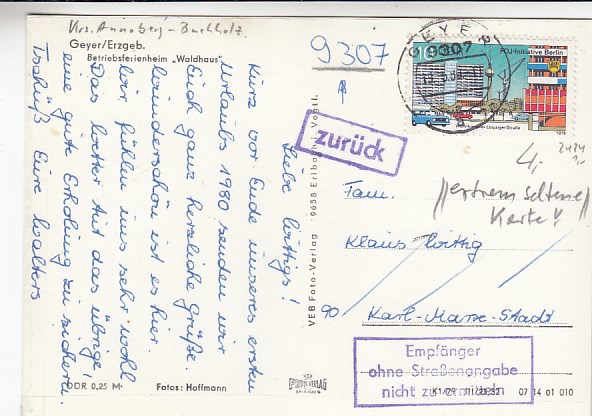 Krs. Annaberg-Buchholz
Geyer/Erzgeb.
Betriebsferienheim „Waldhaus"
Liebe Wittigs!
Kurz vor Ende unseres ersten
Urlaubs 1980 senden wir
Euch ganz herzliche Grüße.
Wunderschön ist es hier.
Wir fühlen uns sehr wohl
Das Wetter tut das übrige!
eine gute Erholung zu sichern.
Tschüß Eure Walters
DDR 0,25 M
Fotos: Hoffmann
VEB Foto-Verlag 9658 Erlbach Vogtl.
9307
GEYER
9307
10
FDJ-Initiative Berlin
Leipziger Straße
1979
zurück
4,-
2424
extrem seltene
Karte!
Fam.
Klaus Wittig
90
Karl-Marx-Stadt
Empfänger
ohne Straßenangabe
nicht zu ermitteln
07 14 01 010